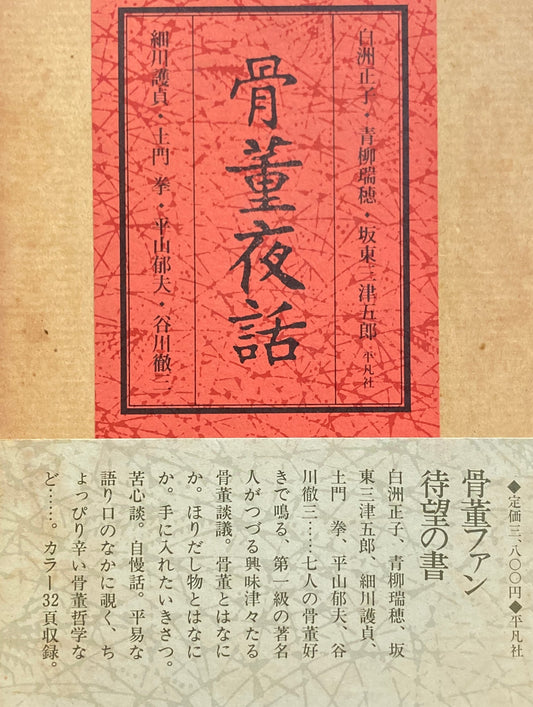 白洲正子・青柳瑞穂・坂東三津五郎 平凡社
骨董夜話
細川護貞・土門 拳・平山郁夫・谷川徹三
◆定価三、八〇〇円◆平凡社
骨董ファン
待望の書
白洲正子、青柳瑞穂、坂
東三津五郎、細川護貞、
土門 拳、平山郁夫、谷
川徹三……七人の骨董好
きで鳴る、第一級の著名
人がつづる興味津々たる
骨董談議。骨董とはなに
か。ほりだし物とはなに
か。手に入れたいきさつ。
苦心談。自慢話。平易な
語り口のなかに覗く、ち
ょっぴり辛い骨董哲学な
ど……。カラー32頁収録。